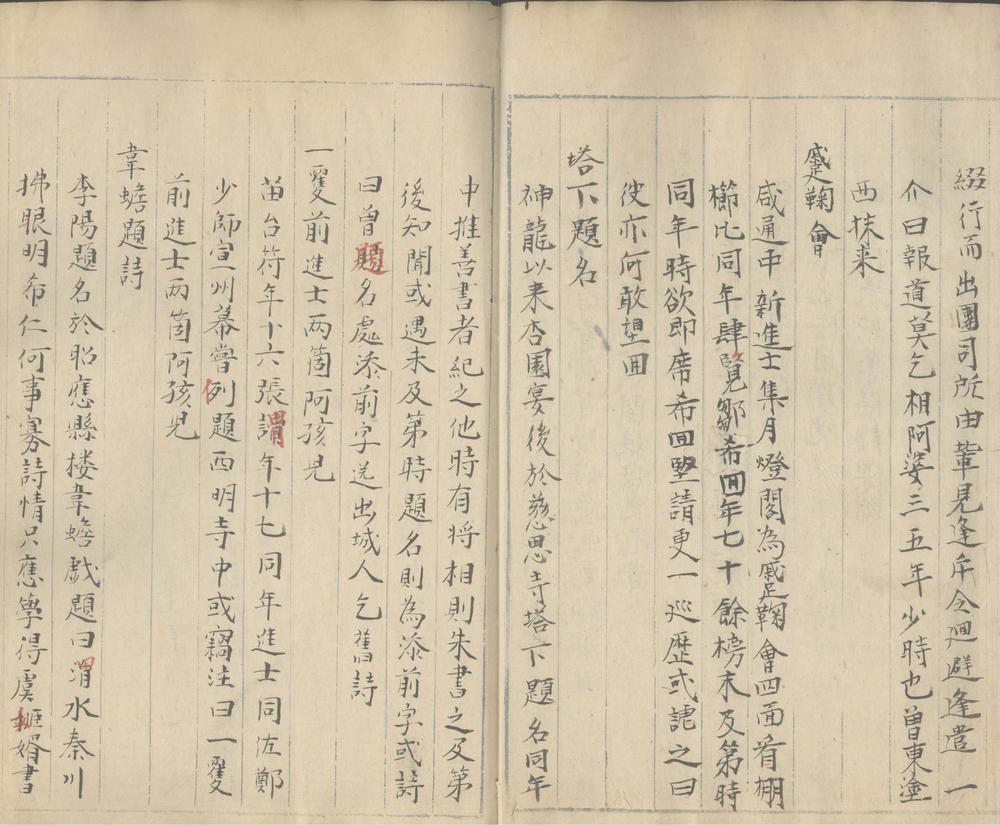 綴行而出團司所由輩見逢年令迴避逢遣一
介曰報道莫乞相阿婆三五年少時也曾東塗
西抹来
蹙鞠會
咸通中新進士集月燈閣為蹙鞠會四面看棚
櫛比同年肆覧鄒希囬年七十餘榜末及第時
同年時欲即席希囬堅請更一巡歷或謔之曰
彼亦何敢望囬
塔下題名
神龍以来杏園宴後於慈恩寺塔下題名同年
中推善書者紀之他時有将相則朱書之及第
後知聞或遇未及第時題名則為添前字或詩
曰曾題名處添前字送出城人乞舊詩
一雙前進士两箇阿孩兒
苗台符年十六張謂年十七同年進士同佐鄭
少師宣州幕嘗列題西明寺中或竊注曰一雙
前進士两箇阿孩兒
韋蟾題詩
李陽題名於昭應縣楼韋蟾戯題曰渭水秦川
拂眼明希仁何事寡詩情只應學得虞姬婿書